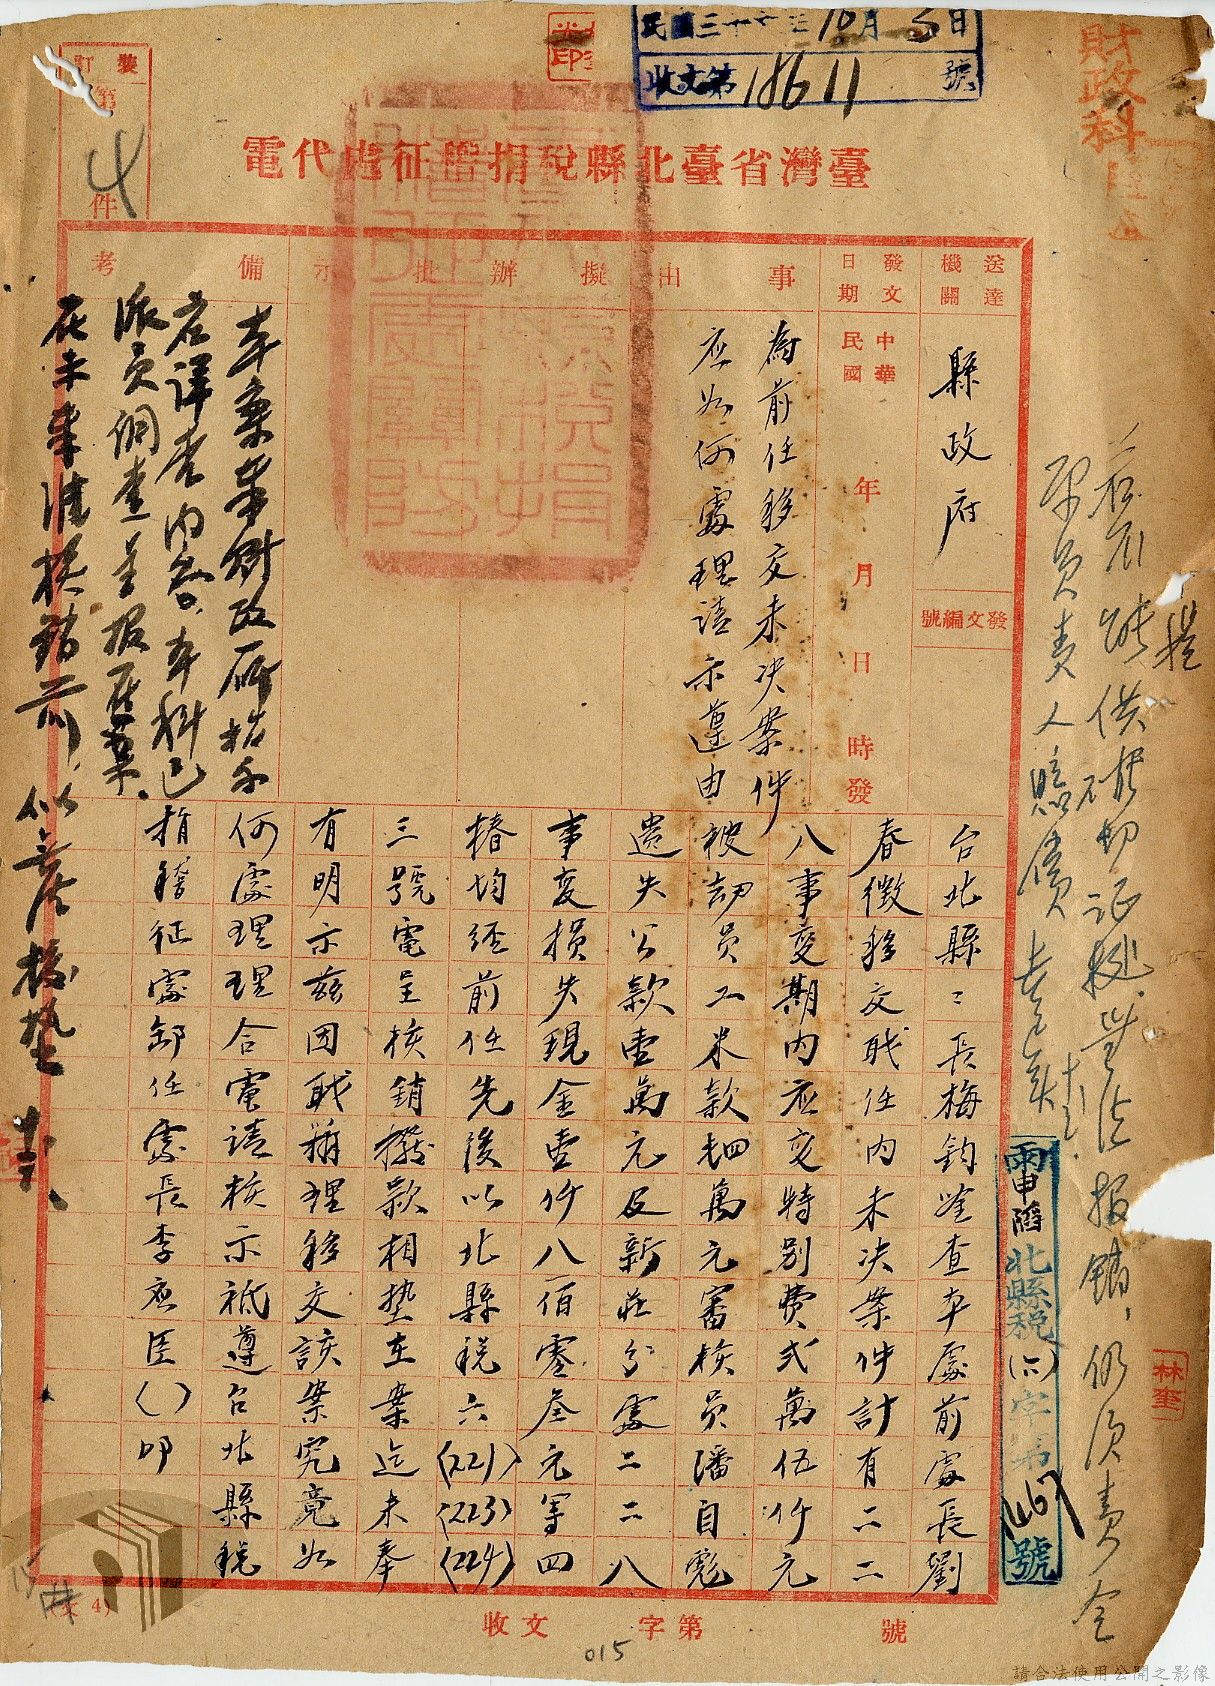 民國三十六年10月3日
收文第18611號
財政科
裝訂
第4件
臺灣省臺北縣稅捐稽征處代電
送達機關
縣政府
發文編號
發文日期
中華民國 年 月 日 時發
事由
為前任移交未決案件
應如何處理請示遵由
擬辦
批示
備考
本案業財政廳指示
應詳查內容本科已
派員調查並報在案
在未奉准核銷前
台北縣縣長梅鈞鑒查本處前處長劉
春徵移交職任內未决案件計有二二
八事变期內应交特别費弍萬伍仟元
被刼員工米款肆萬元審核員潘自彪
遗失公款壹萬元及新莊分處二二八
事变損失現金壹仟八佰零叁元等四
樁均經前任先後以北縣稅六(221)(223)(224)
三號電呈核銷撥款相墊在案迄未奉
有明示茲因职辦理移交該案究竟如
何處理理合電請核示祗遵台北縣稅
捐稽征處卸任處長李应臣()叩
若不能供確切证據無法報銷,仍須責令
承員責人賠償
北縣稅(六)字第1467號
林奎
收文 字第 號
015
請合法使用公開之影像